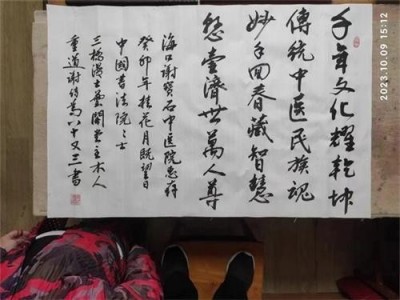 千年文化耀乾坤
傳統中医民族魂
妙手回春藏智慧
悬壺濟世萬人尊
海口謝寳石中医院惠存
癸卯年桂花月既望日
中國書法院之士
三橋漫士藝閑堂主木人
重道謝 八十又三書
2023.10.09 15:12